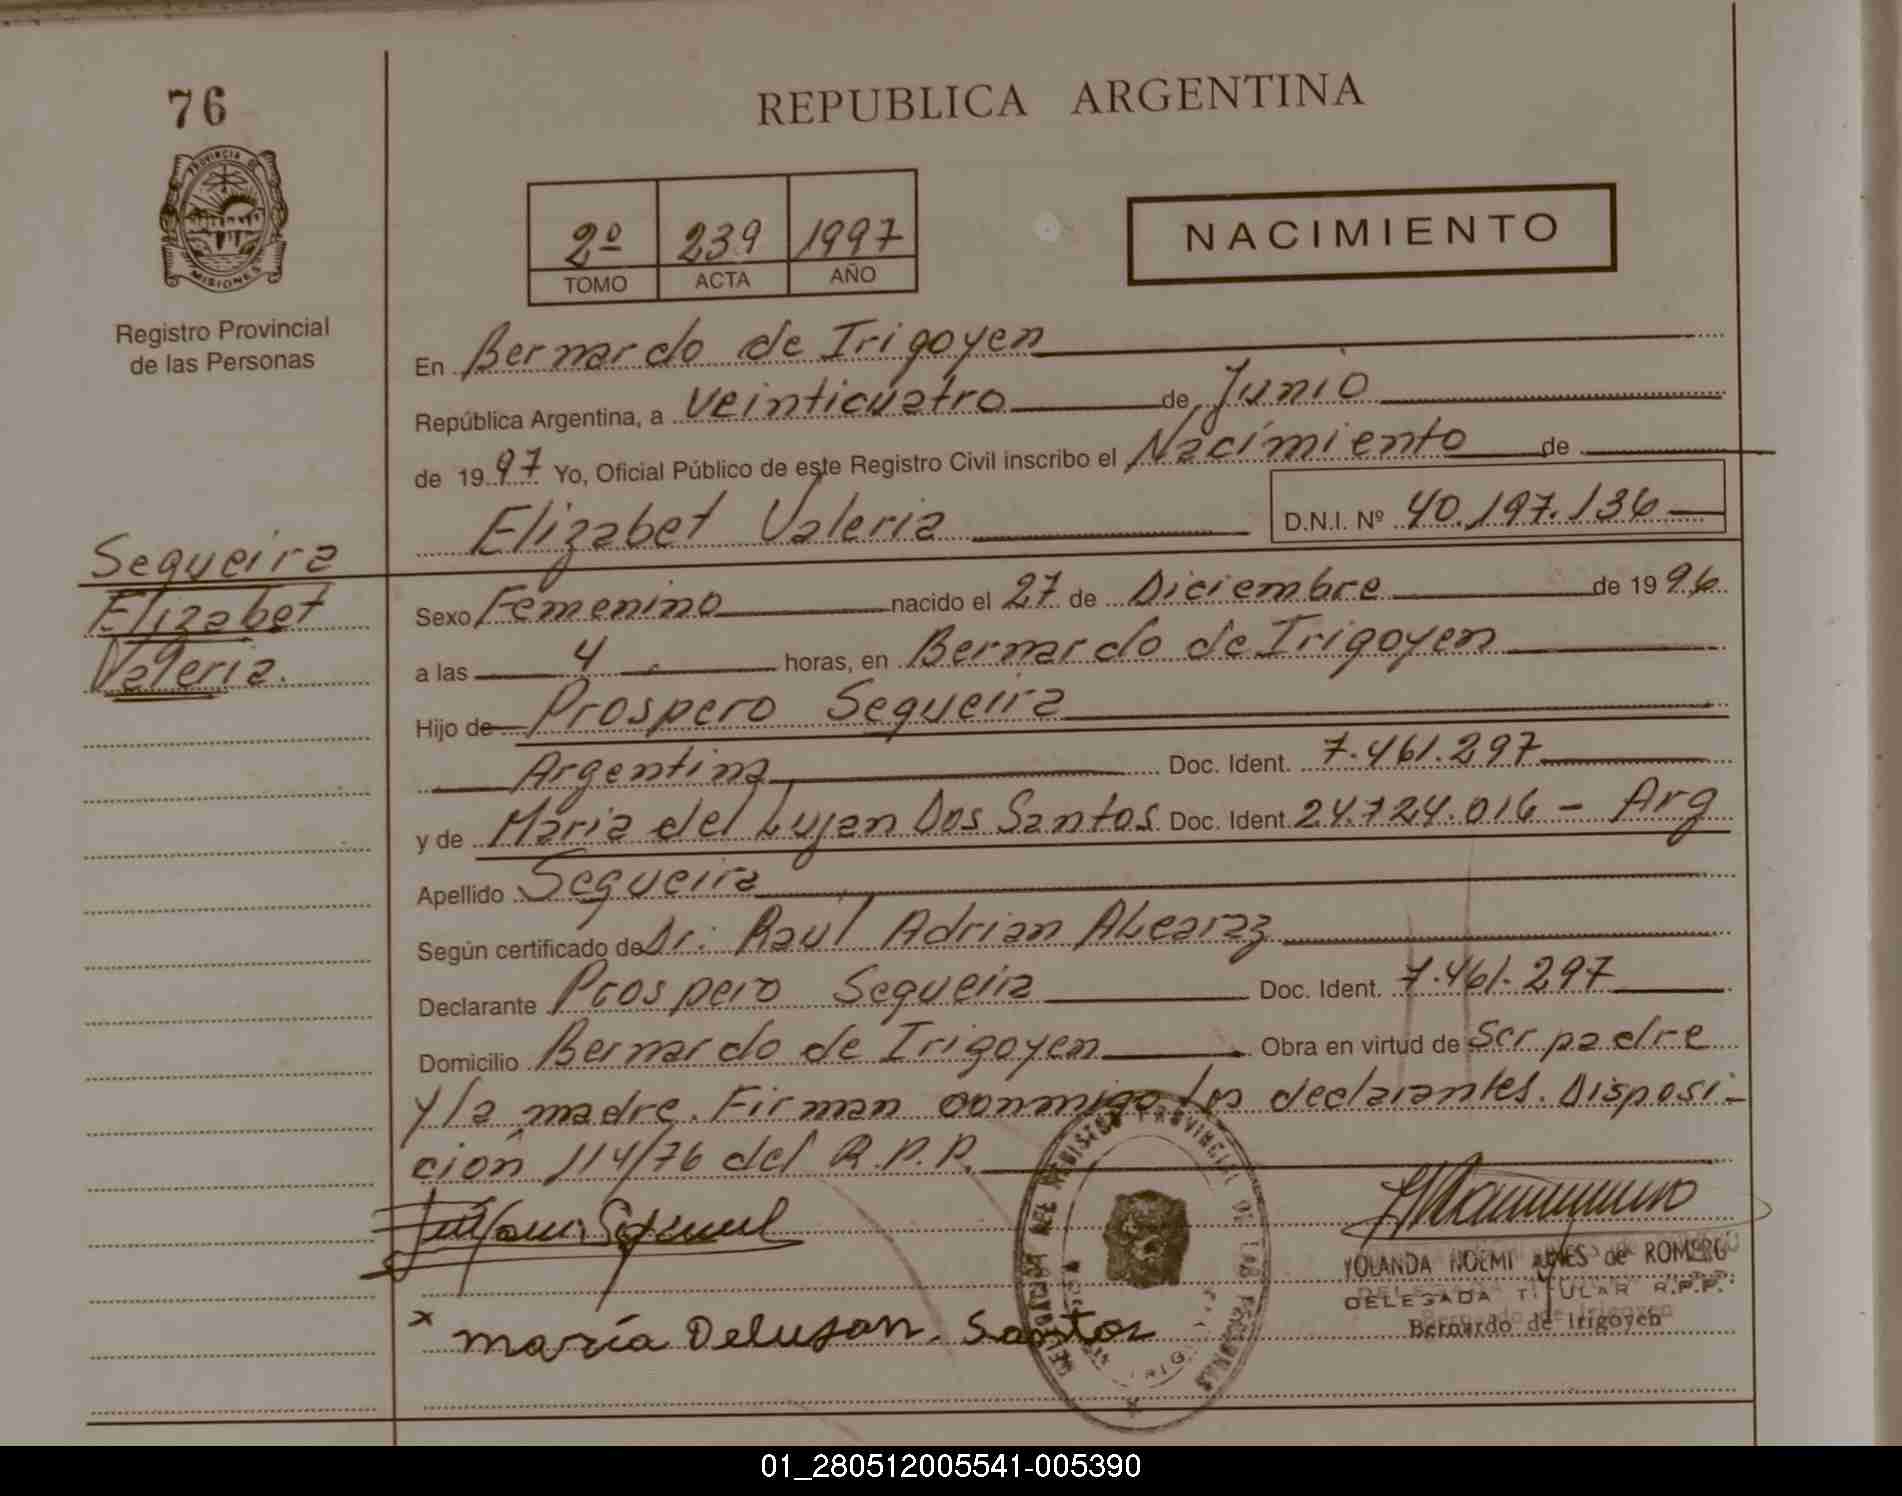 76
REPUBLICA ARGENTINA
PROVINCIA DE
MISIONES
Registro Provincial
de las Personas
2º 239 1997
TOMO ACTA AÑO
NACIMIENTO
En Bernardo de Irigoyen
República Argentina, a veinticuatro de Junio
de 1997 Yo, Oficial Público de este Registro Civil inscribo el Nacimiento de
Elizabet Valeria D.N.I. Nº 40.197.136
Sequeira
Elizabet
Valeria.
Sexo Femenino nacido el 27 de Diciembre de 1996
a las 4 horas, en Bernardo de Irigoyen
Hijo de Prospero Sequeira
Argentina Doc. Ident. 7.461.297
y de Maria del Lujan Dos Santos Doc. Ident 24.724.016 - Arg
Apellido Sequeira
Según certificado de Dr. Raul Adrian Alcaraz
Declarante Prospero Sequeira Doc. Ident. 7.461.297
Domicilio Bernardo de Irigoyen Obra en virtud de Ser padre
y la madre. Firman conmigo los declarantes. Disposi-
ción 114/76 del R.P.P.
YOLANDA NOEMI de ROMERO
DELEGADA TITULAR R.P.P.
Bernardo de Irigoyen
x maría Delujan. Santos
01_280512005541-005390